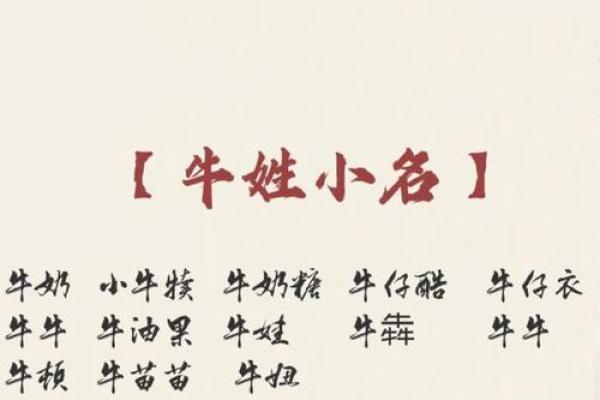 【牛姓小名】
牛奶 小牛犊 牛奶糖 牛仔酷 牛仔衣
牛牛 牛油果 牛娃 牛犇 牛牛
牛顿 牛苗苗 牛妞